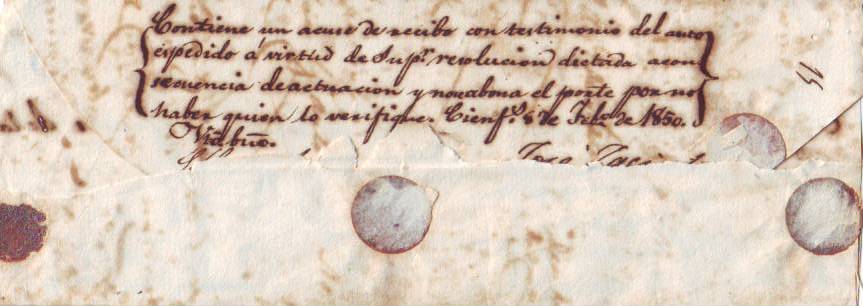 Contiene un acuse de recibo con testimonio del auto
espedido á virtud de Supr. resolucion dictada a con
secuencia de actuacion y no se abona el porte por no
haber quien lo verifique. Cienfs. 8 de Febo. de 1850.
Vto. bueno.
José